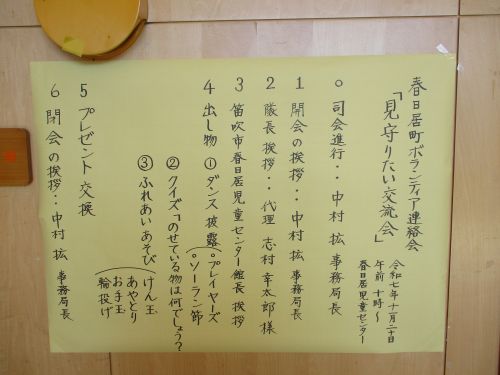 春日居町ボランティア連絡会
「見守りたい交流会」
令和七年十一月二十日
午前 十時〜
春日居児童センター
○ 司会進行・・中村 拡 事務局長
1 開会の挨拶・・中村 拡 事務局長
2 隊長 挨拶・・代理 志村 幸太郎 様
3 笛吹市春日居児童センター館長 挨拶
4 出し物 ① ダンス 披露
○プレイヤーズ
○ソーラン節
② クイズ「のせている物は何でしょう?
③ ふれあいあそび
けん玉
あやとり
お手玉
輪投げ
5 プレゼント 交換
6 閉会の挨拶・・中村 拡 事務局長